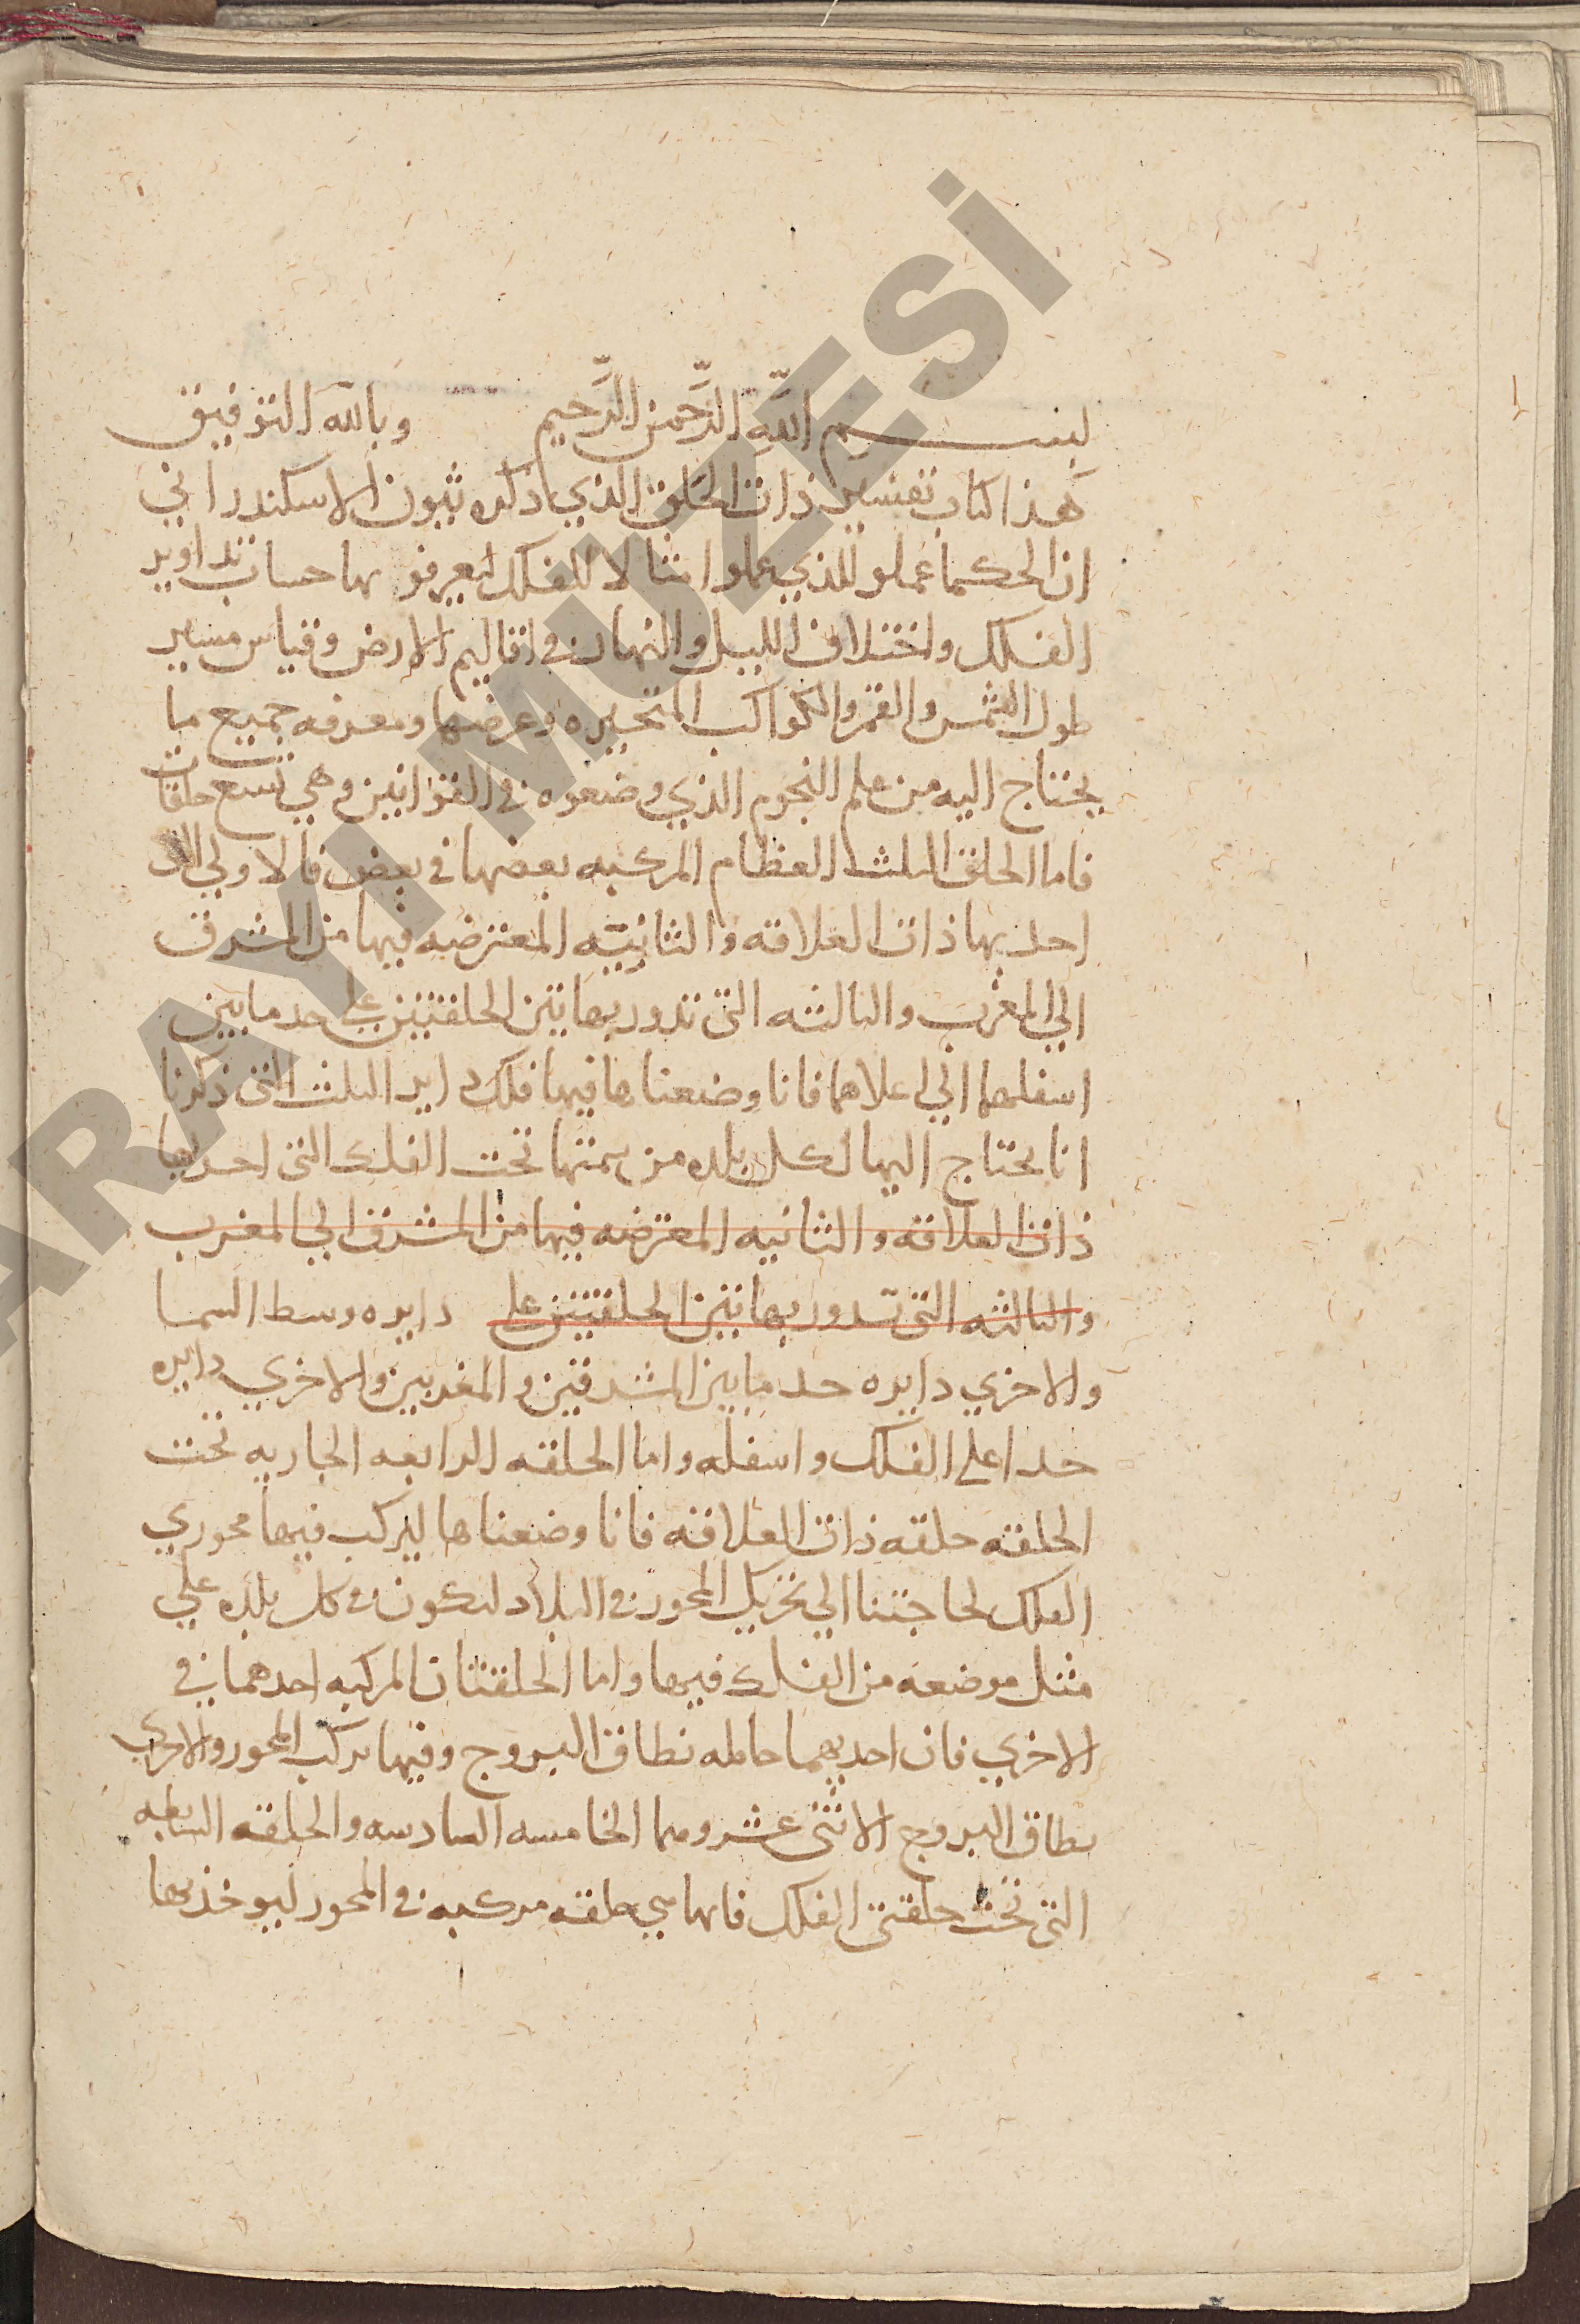 بسم اللَّه الرَّحمن الرَّحيم وبالله التوفيق
هذا كتاب تفسير ذات الحلق الذي ذكره ثيون الاسكندراني
ان الحكما عملو للذي عملوا مثالا للفلك ليعرفو بها حساب تداوير
الفلك واختلاف الليل والنهار في اقاليم الارض وقياس مسير
طول الشمس والقمر والكواكب المتحيره وعرضها ومعرفه جميع ما
يحتاج اليه من علم النجوم الذي وضعوه في القوانين وهي تسع حلقات
فاما الحلق الثلث العظام المركبه بعضها في بعض فالاولي
احديها ذات العلاقه والثانييه المعترضه فيها من المشرق
الي المغرب والثالثه التي تدور بهاتين الحلقتين علي حد مابين
اسفلهما الي اعلاهما فانا وضعناها فيها فلك دواير الثلث التي ذكرنا
انا نحتاج اليها لكل بلده من سمتها تحت الفلك التي احداها
ذات العلاقه والثانيه المعترضه فيها من المشرق الي المغرب
والثالثه التي تدور بهاتين الحلقتين علي دايره وسط السما
والاخري دايره حد مابين المشرقين والمغربين والاخري دايره
حد اعلي الفلك واسفله واما الحلقه الرابعه الجاريه تحت
الحلقه حلقه ذات العلاقه فانا وضعناها ليركب فيها محوري
الفلك لحاجتنا الي تحريك المحور في البلاد لتكون في كل بلده علي
مثل موضعه من الفلك فيها واما الحلقتان المركبه احدهما في
الاخري فان احديهما حامله نطاق البروج وفيها يركب المحور والاخري
نطاق البروج الاثني عشر وهما الخامسه السادسه والحلقه السابعه
التي تحت حلقتي الفلك فانها هي حلقه مركبه في المحور ليوخذ بها
ARAYI MÜZESİ